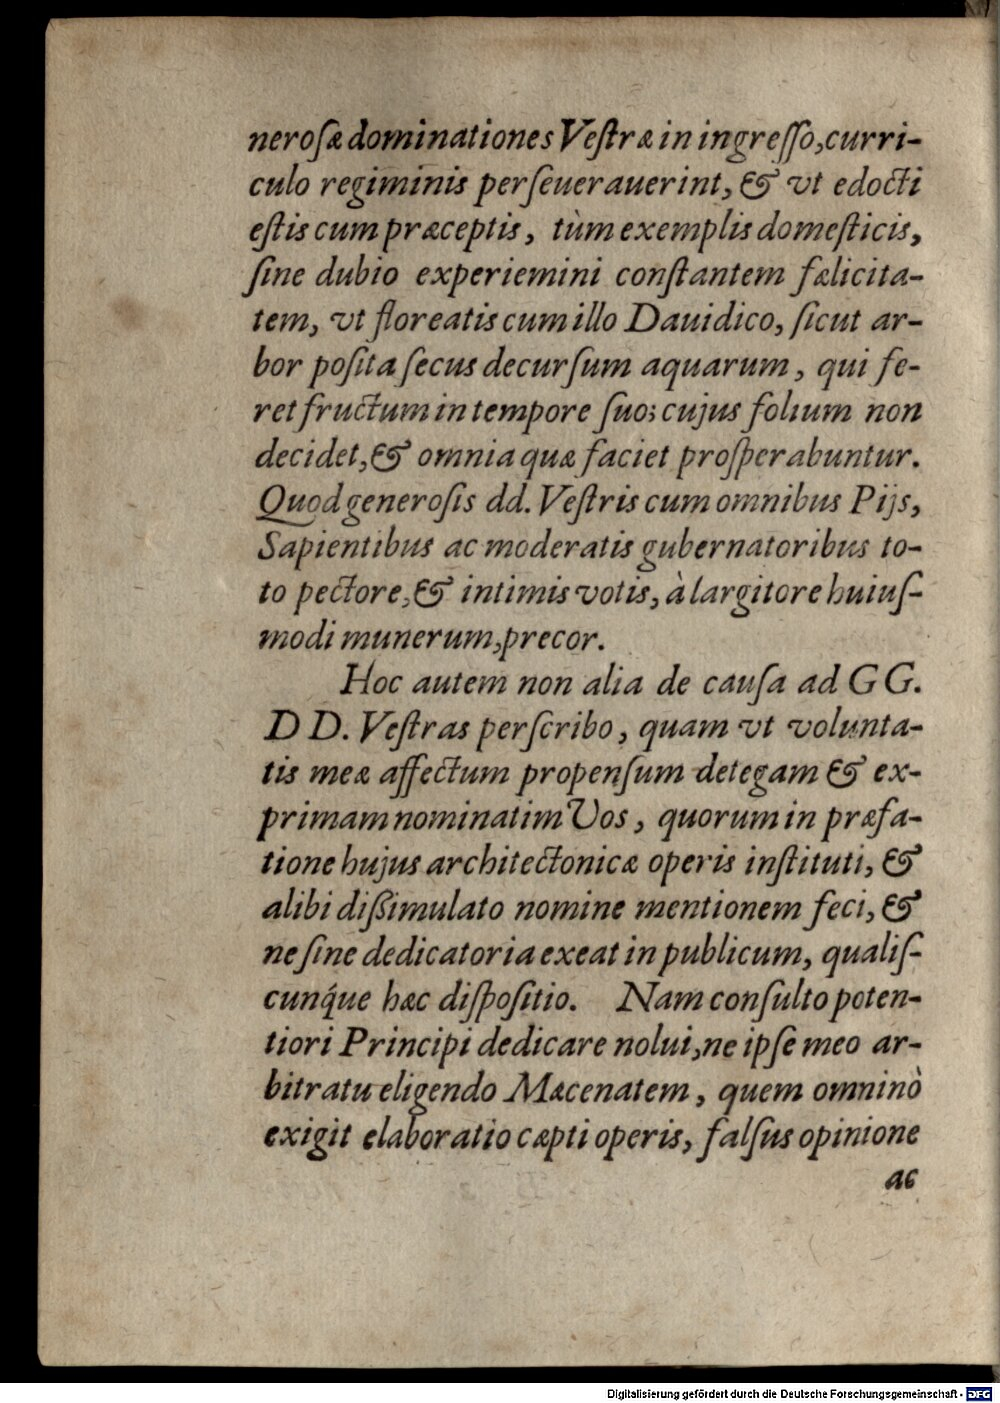 neroſæ dominationes Veſtræ in ingreſſo, curri-
culo regiminis perſeuerauerint, & vt edocti
eſtis cum præceptis, tùm exemplis domeſticis,
ſine dubio experiemini conſtantem fælicita-
tem, vt floreatis cum illo Dauidico, ſicut ar-
bor poſita ſecus decurſum aquarum, qui fe-
ret fructum in tempore ſuo; cujus folium non
decidet, & omnia quæ faciet proſperabuntur.
Quod generoſis dd. Veſtris cum omnibus Pijs,
Sapientibus ac moderatis gubernatoribus to-
to pectore, & intimis votis, à largitore huiuſ-
modi munerum, precor.
Hoc autem non alia de cauſa ad GG.
DD. Veſtras perſcribo, quam vt volunta-
tis meæ affectum propenſum detegam & ex-
primam nominatim Vos, quorum in præfa-
tione hujus architectonicæ operis inſtituti, &
alibi dißimulato nomine mentionem feci, &
ne ſine dedicatoria exeat in publicum, qualiſ-
cunq́ue hæc diſpoſitio. Nam conſulto poten-
tiori Principi dedicare nolui, ne ipſe meo ar-
bitratu eligendo Mæcenatem, quem omninò
exigit elaboratio cæpti operis, falſus opinione
ac
Digitalisierung gefördert durch die Deutsche Forschungsgemeinschaft - DFG